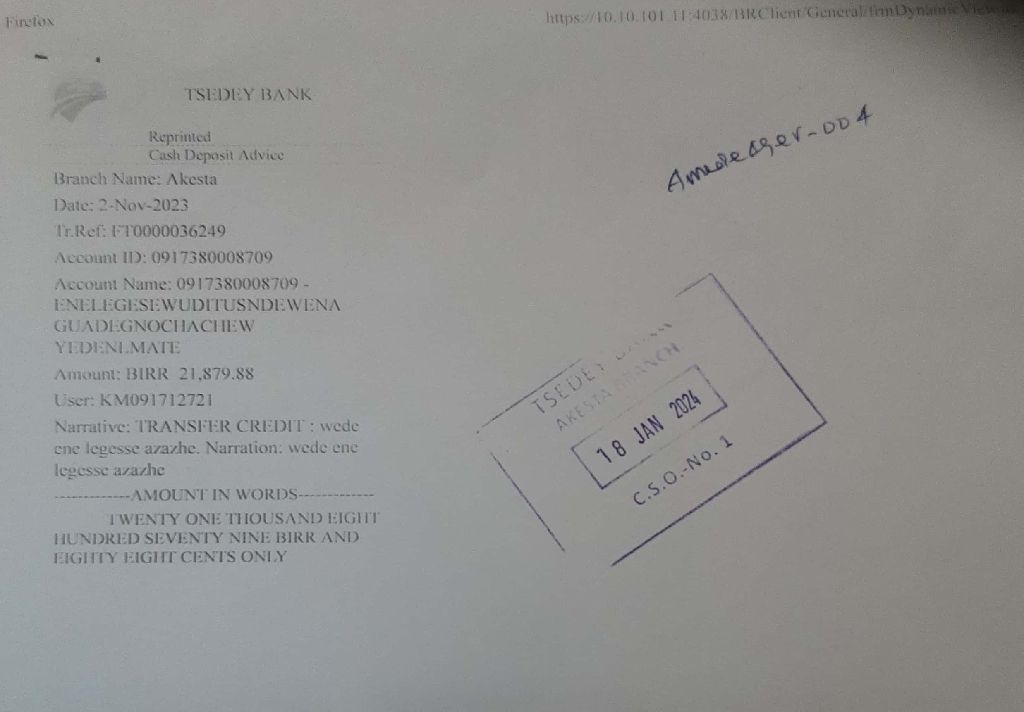 Firefox
https://10.10.101.11:4038/BRClient/General/frmDynamicView
TSEDEY BANK
Reprinted
Cash Deposit Advice
Branch Name: Akesta
Date: 2-Nov-2023
Tr.Ref: FT0000036249
Account ID: 0917380008709
Account Name: 0917380008709 -
ENELEGESEWUDITUSNDEWENA
GUADEGNOCHACHEW
YEDENLMATE
Amount: BIRR 21,879.88
User: KM091712721
Narrative: TRANSFER CREDIT : wede
ene legesse azazhe. Narration: wede ene
legesse azazhe
-------------AMOUNT IN WORDS-------------
TWENTY ONE THOUSAND EIGHT
HUNDRED SEVENTY NINE BIRR AND
EIGHTY EIGHT CENTS ONLY
TSEDEY BANK
AKESTA BRANCH
18 JAN 2024
C.S.O.-No. 1